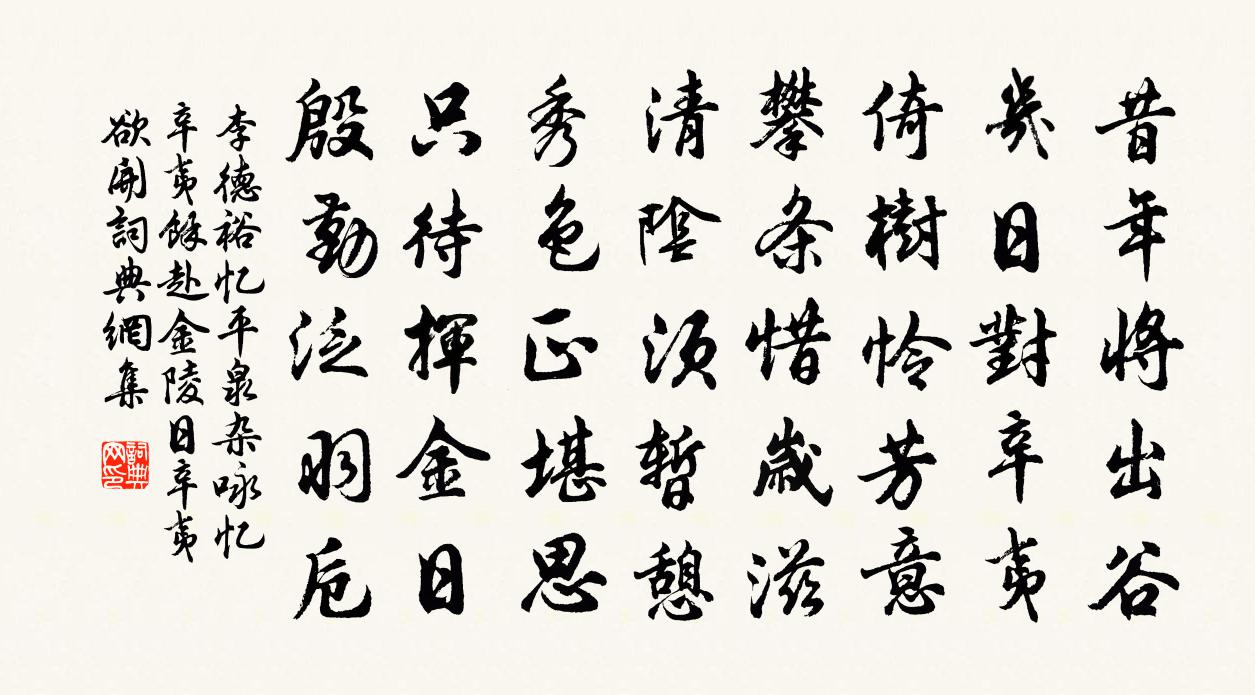 昔年將出谷
幾日對辛夷
倚樹怜芳意
攀条惜歲滋
清陰須暫憩
秀色正堪思
只待揮金日
殷勤泛羽卮
李德裕忆平泉杂咏忆
辛夷餘赴金陵日辛夷
欲開詞典網集
詞典网印